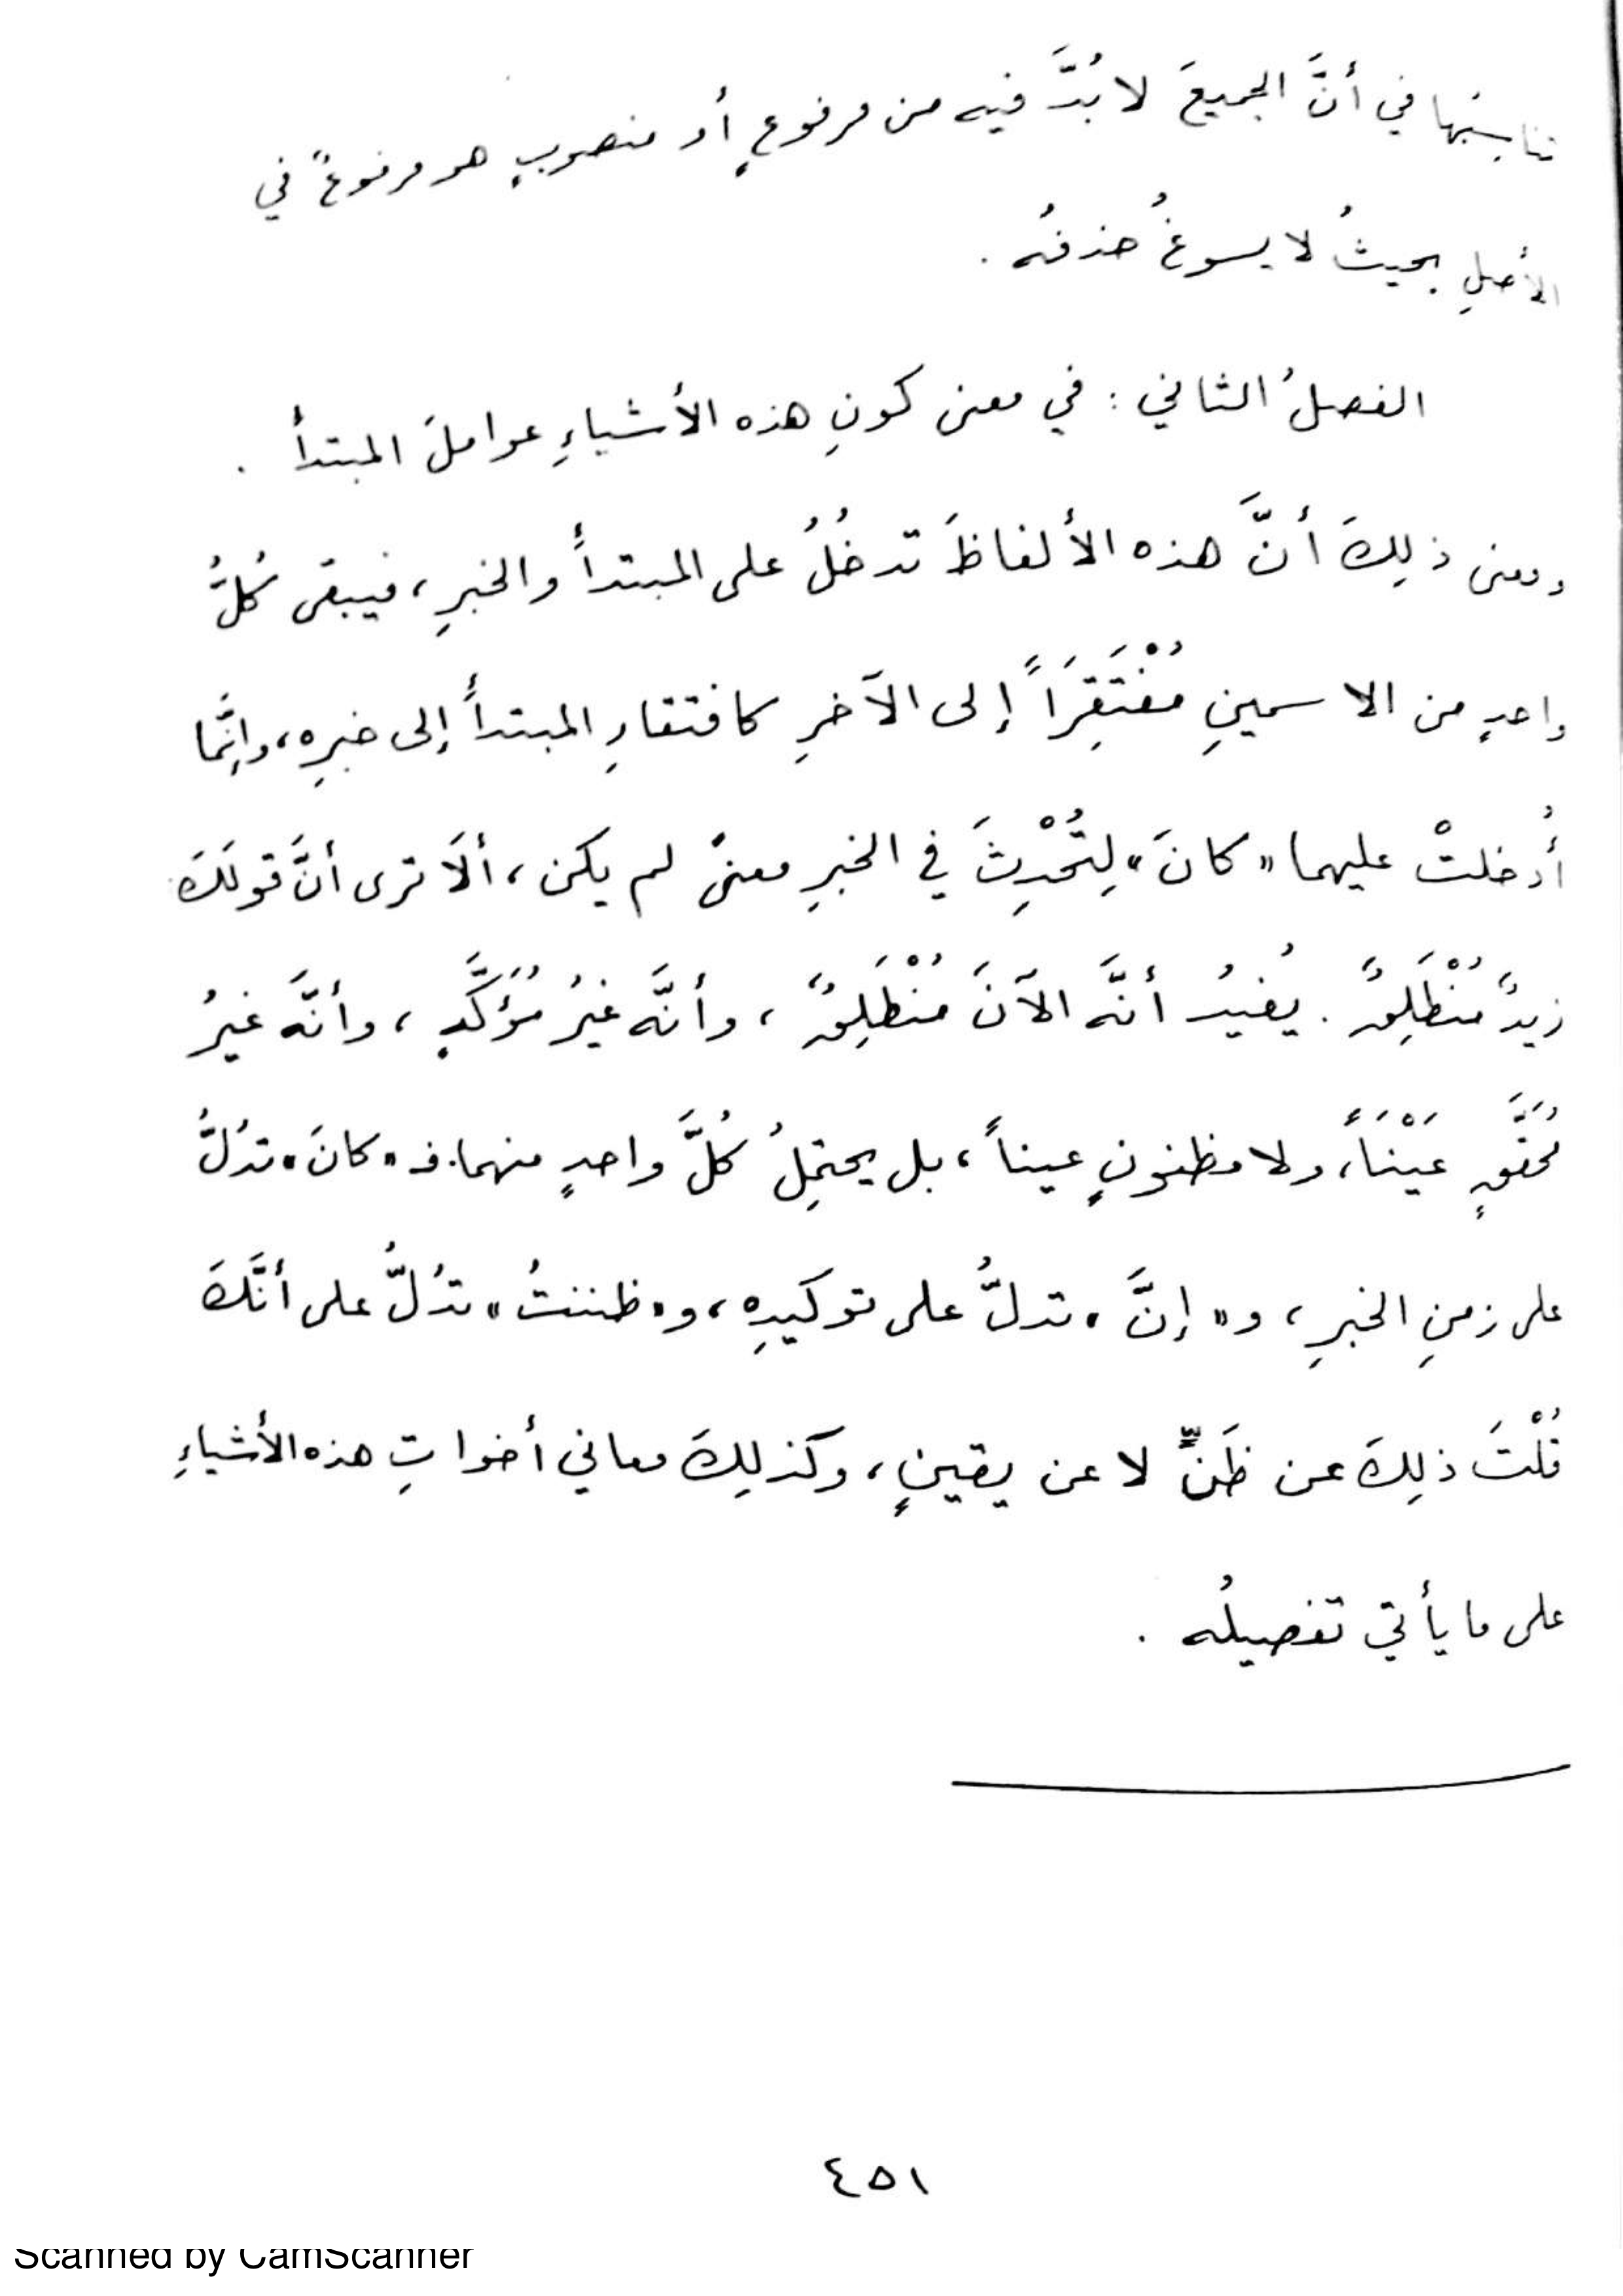 تناسبَها في أنَّ الجميعَ لا بُدَّ فيه من مرفوعٍ أو منصوبٍ هو مرفوعٌ في
الأصلِ بحيثُ لا يسوغُ حذفُه .
الفصلُ الثاني : في معنى كونِ هذه الأشياءِ عواملَ المبتدأ .
ومعنى ذلِكَ أنَّ هذه الألفاظَ تدخُلُ على المبتدأ والخبرِ ، فيبقى كُلُّ
واحدٍ من الاسمينِ مُفْتَقِرَاً إلى الآخرِ كافتقارِ المبتدأ إلى خبرِه ، وإنَّما
أُدخلتْ عليهما « كانَ » لِتُحْدِثَ في الخبرِ معنىً لم يكن ، ألَا ترى أنَّ قولَكَ
زيدٌ مُنْطَلِقٌ . يُفيدُ أنَّه الآنَ مُنْطَلِقٌ ، وأنَّه غيرُ مُؤَكَّدٍ ، وأنَّه غيرُ
مُحَقَّقٍ عَيْنَاً ، ولا مظنونٍ عيناً ، بل يحتمِلُ كُلَّ واحدٍ منهما . فـ « كانَ » تدُلُّ
على زمنِ الخبرِ ، و « إنَّ » تدلُّ على توكيدِه ، و « ظننتُ » تدُلُّ على أنَّكَ
قُلْتَ ذلِكَ عن ظَنٍّ لا عن يقينٍ ، وكذلِكَ معاني أخواتِ هذه الأشياءِ
على ما يأتي تفصيلُه .
٤٥١
Scanned by CamScanner